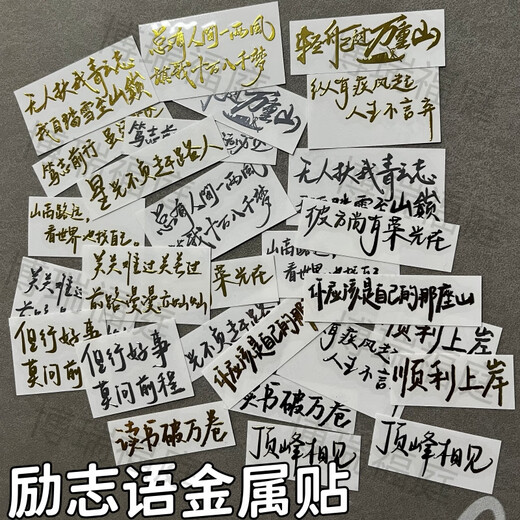 总有人间一两风
填我十万八千梦
轻舟已过万重山
无人扶我青云志
我自踏雪至山巅
纵有疾风起
人生不言弃
万重山
笃志前行
笃志
星光不负赶路人
无人扶我青云志
踏雪至山巅
山高路远,
看世界也找自己
总有人间一两风
填我十万八千梦
彼方尚有荣光在
看世界也找自己
关关难过关关过
前路漫漫亦灿灿
荣光在
关关难过
你应该是自己的那座山
但行好事
莫问前
但行好事
莫问前程
光不负赶路
你应该是自己的那座
有疾风起
人生不言
顺利上岸
顺利上岸
读书破万卷
读书破万卷
顶峰相见
顶峰相见
励志语金属贴